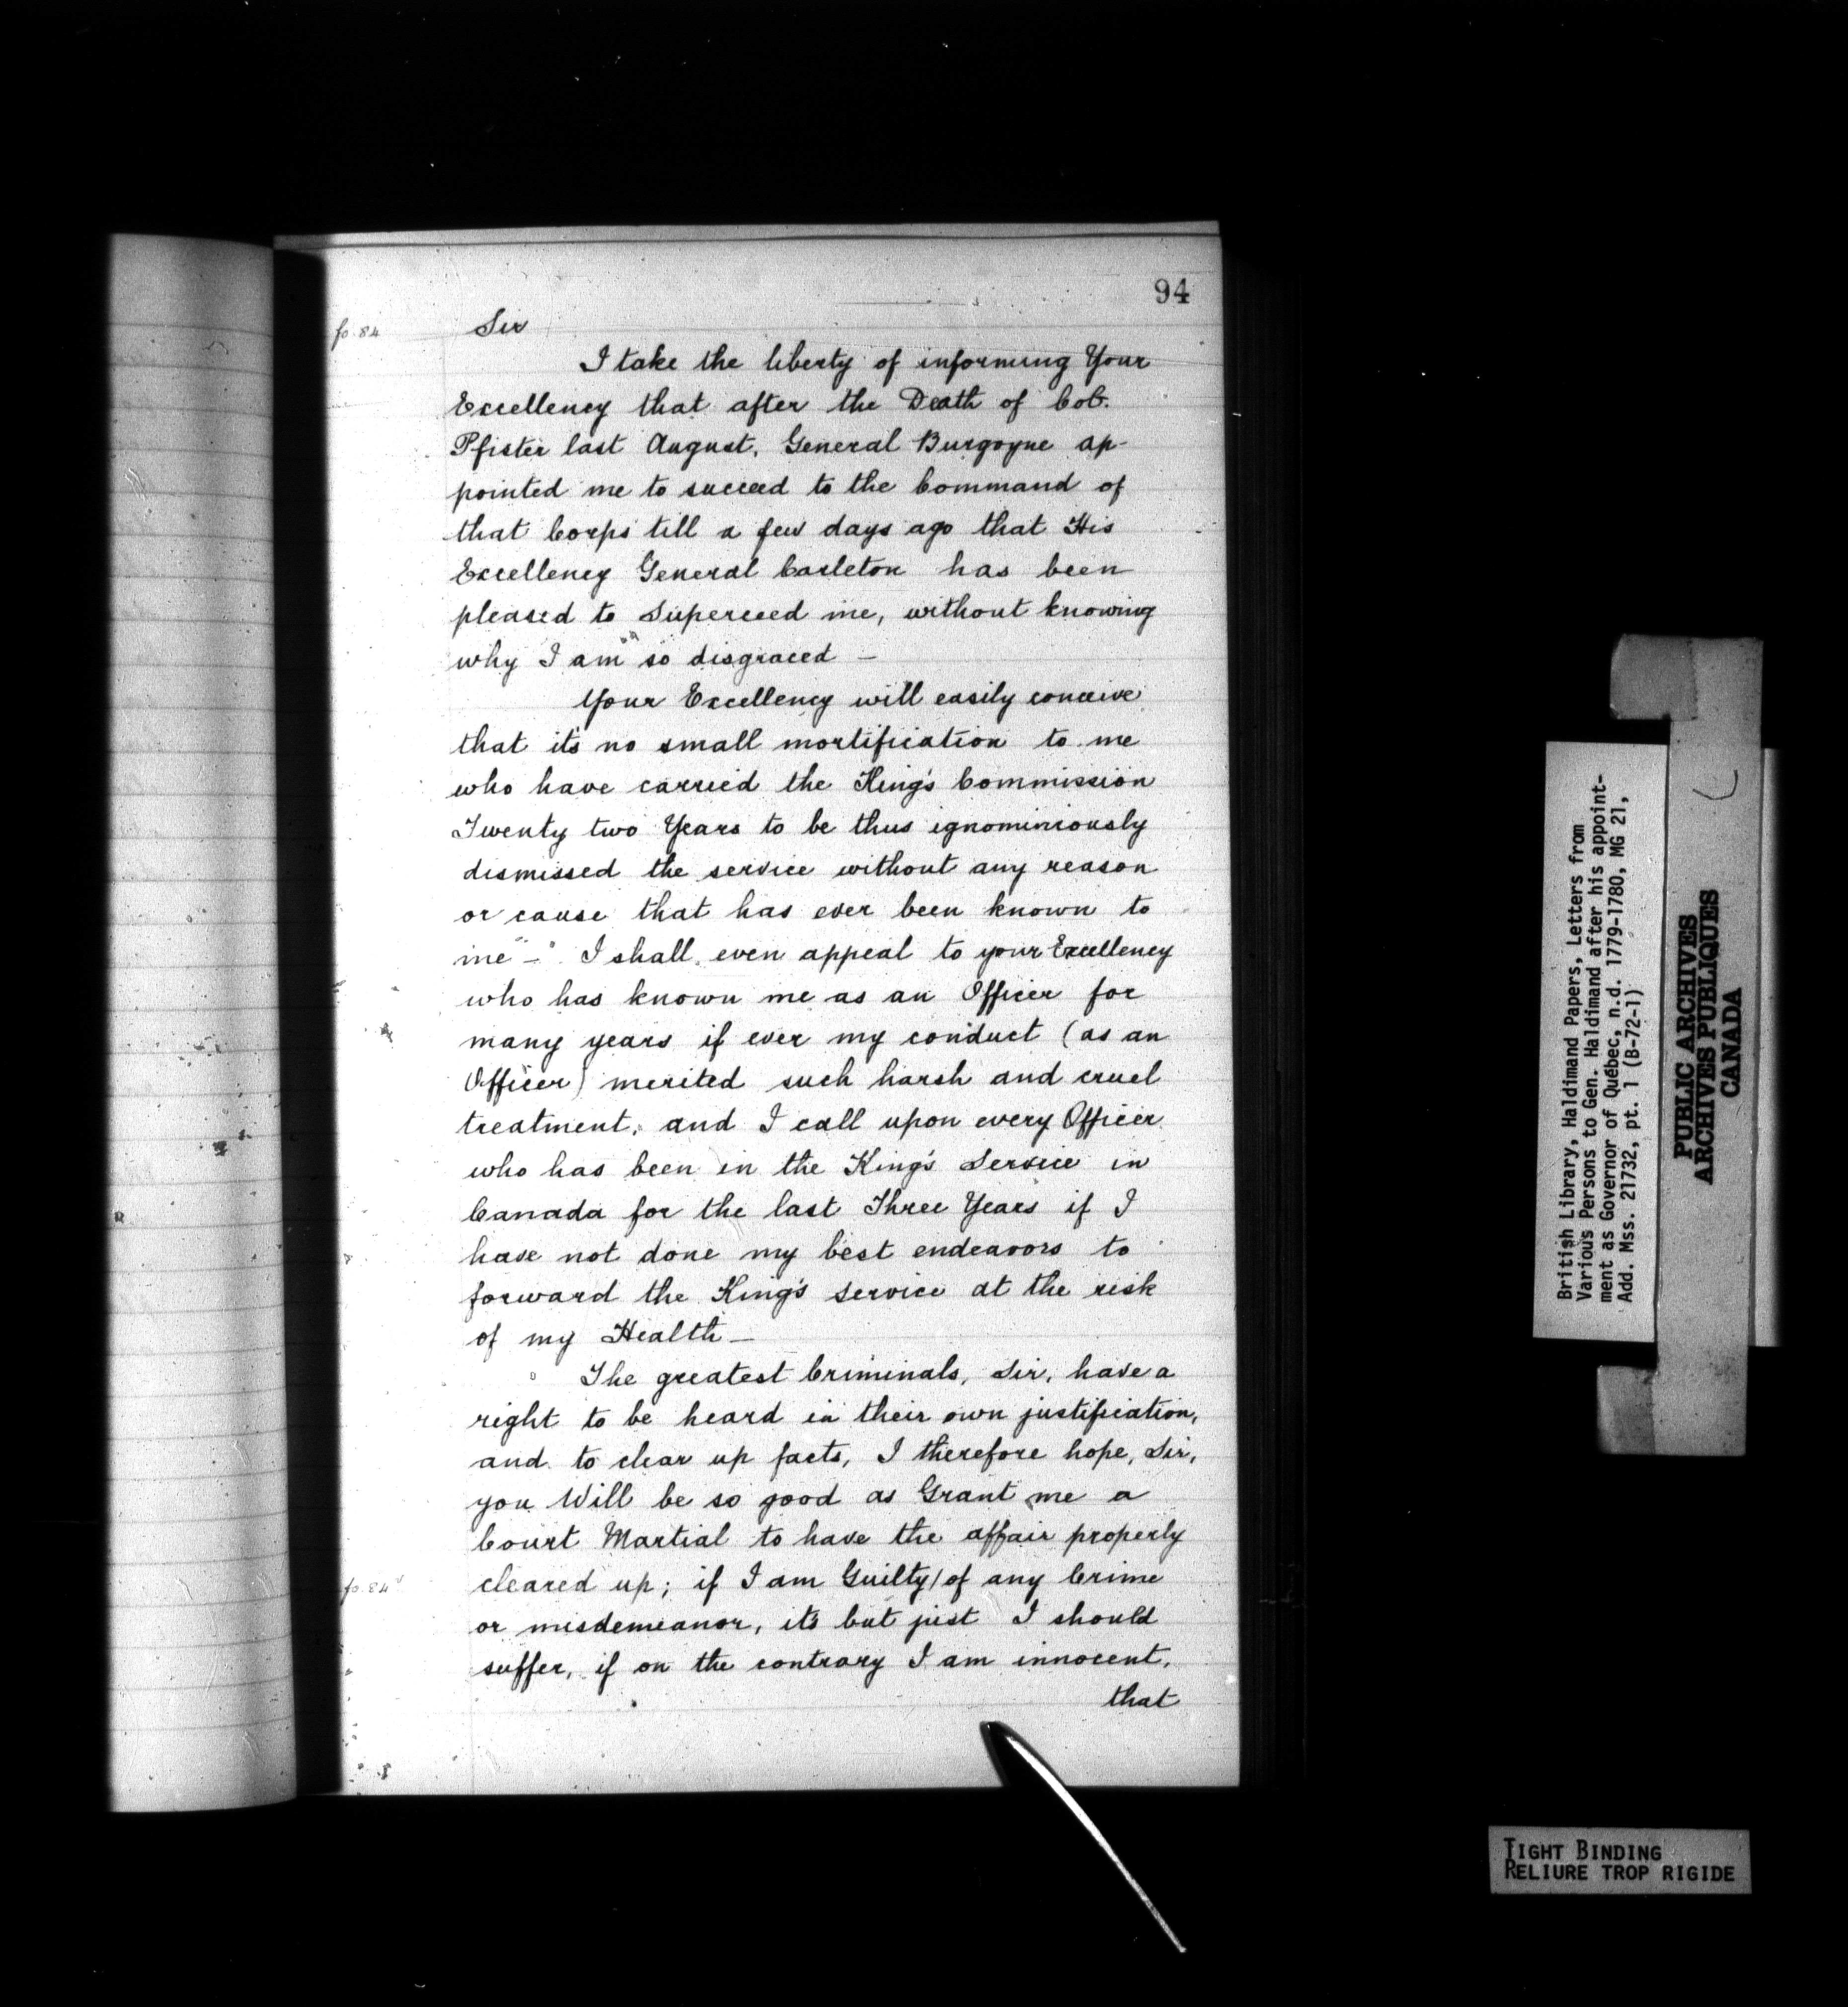 94
fo. 84
Sir
I take the liberty of informing Your
Excellency that after the Death of Col.
Pfister last August, General Burgoyne ap-
pointed me to succeed to the Command of
that Corps till a few days ago that His
Excellency General Carleton has been
pleased to Superceed me, without knowing
why I am so disgraced —
Your Excellency will easily conceive
that it's no small mortification to me
who have carried the King's Commission
Twenty two Years to be thus ignominiously
dismissed the service without any reason
or cause that has ever been known to
me — I shall even appeal to your Excellency
who has known me as an Officer for
many years if ever my conduct (as an
Officer) merited such harsh and cruel
treatment, and I call upon every Officer
who has been in the King's Service in
Canada for the last Three Years if I
have not done my best endeavors to
forward the King's Service at the risk
of my Health —
The greatest Criminals, Sir, have a
right to be heard in their own justification,
and to clear up facts, I therefore hope, Sir,
you Will be so good as Grant me a
Court Martial to have the affair properly
fo. 84v
cleared up; if I am Guilty/of any Crime
or misdemeanor, it's but just I should
suffer, if on the contrary I am innocent,
that
British Library, Haldimand Papers, Letters from
Various Persons to Gen. Haldimand after his appoint-
ment as Governor of Québec, n.d. 1779-1780, MG 21,
Add. Mss. 21732, pt. 1 (B-72-1)
PUBLIC ARCHIVES
ARCHIVES PUBLIQUES
CANADA
TIGHT BINDING
RELIURE TROP RIGIDE